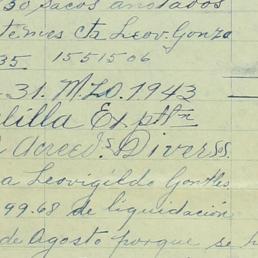 30 sacos anotados
Cta Leov. Gonza
35 155 15 06
31. M.Z.O. 1943
lilla Ex
Acreed.s Diverss.
a Leovigildo Gontles
99.68 de liquidación
de Agosto porque se h